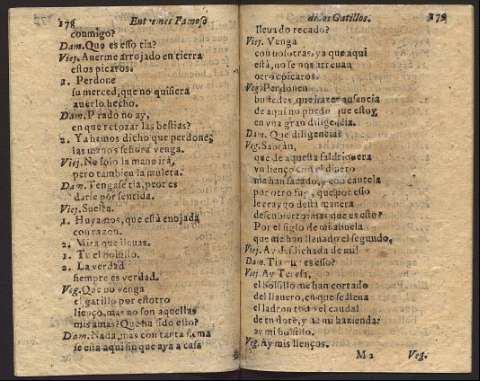 178 Entremes Famoso
conmigo?
Dam. Que es esso tia?
Viej. Auerme arrojado en tierra
estos picaros.
2. Perdone
su merced, que no quisiera
auerlo hecho.
Dam. Prado no ay,
en que retozar las bestias?
2. Ya hemos dicho que perdone;
las manos señora venga.
Viej. No solo la mano irá,
pero tambien la muleta.
Dam. Tengase tia, peor es
darse por sentida.
Viej. Suelta.
1. Huyamos, que está enojada
con razon.
2. Mira que lleuas.
1. Tu el bolsillo.
2. La verdad
siempre es verdad.
Veg. Que no venga
el gatillo por estotro
lienço, mas no son aquellas
mis amas? Que ha sido esto?
Dam. Nada, mas con tanta
se està aqui sin que aya a casa
de los Gatillos. 179
lleuado recado?
Viej. Venga
con nosotras, ya que aqui
está, no se nos atreuan
otros picaros.
Veg. Perdonen
bustedes, que hazer ausencia
de aqui no puedo que estoy
en vna gran diligencia.
Dam. Que diligencia?
Veg. Sabràn,
que de aquesta faldriquera
vn lienço con el dinero
me han sacado, y con cautela
por otro
le traygo desta manera
descubierto mas que es esto?
Por el siglo de mi abuela
que me han lleuado el segundo.
Viej. Ay desdichada de mi!
Dam. Tia que es esso?
Viej. Ay Teresa,
el bolsillo me han cortado
del llauero, en que se lleua
el ladron todo el caudal
de tu dote, y mi hazienda:
ay mi bolsillo.
Veg. Ay mis lienços.
M 2 Veg.